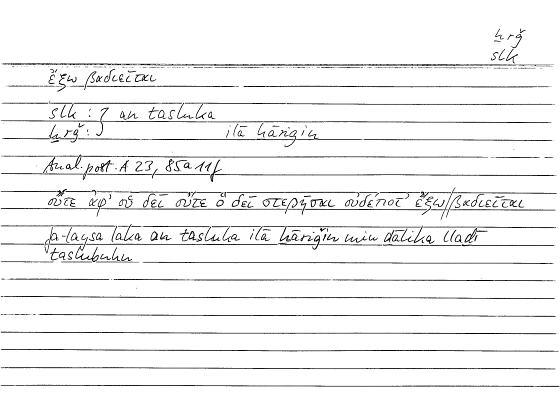 ḫrǧ
slk
ἔξω βαδιεῖται
slk : } an tasluka
ḫrǧ : ilā ḫāriǧin
Anal. post. A 23, 85a11f
οὔτε ἀφ' οὗ δεῖ οὔτε ὃ δεῖ στερῆσαι οὐδέποτ' ἔξω//βαδιεῖται
fa-laysa laka an tasluka ilā ḫāriǧin min ḏālika llaḏī
taslubuhu